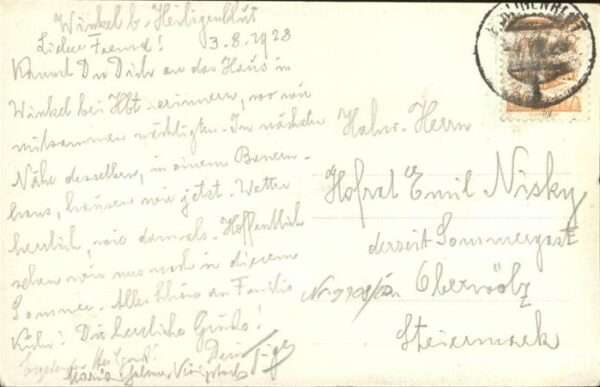 Winkel b. Heiligenblut
Lieber Freund! 3.8.1928
Kannst Du Dich an das Haus in
Winkel bei Hbt erinnern, wo wir
mitsammen nächtigten. In nächster
Nähe desselben, in einem Bauern-
haus, hausen wir jetzt. Wetter
herrlich, wie damals. Hoffentlich
sehen wir uns noch in diesem
Sommer. Alles Schöne an Familie
Dir herzliche Grüße!
Dein
Maria
HEILIGENBLUT
Herrn
Hofrat Emil Nisky
derzeit Sommergast
Oberwölz
Steiermark